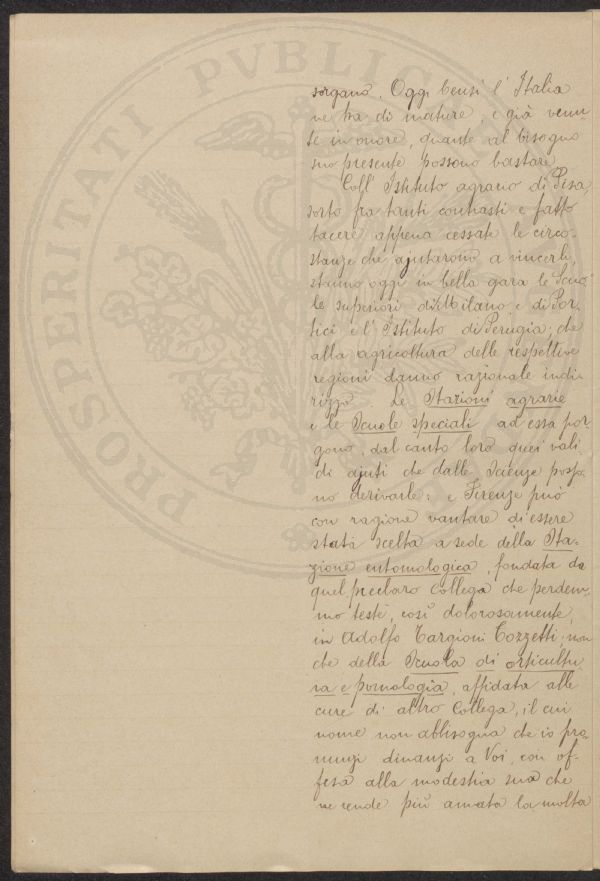 PROSPERITATI PVBLICAE
sorgano. Oggi bensì l'Italia
ne ha di mature, e già venu-
te in onore, quante al bisogno
suo presente possono bastare
Coll'Istituto agrario di Pisa,
sorto fra tanti contrasti e fatto
tacere appena cessate le circo-
stanze che ajutarono a vincerli,
stanno oggi in bella gara le Scuo-
le superiori di Milano e di Por-
tici e l'Istituto di Perugia; che
alla agricoltura delle respettive
regioni danno razionale indi-
rizzo. Le Stazioni agrarie
e le Scuole speciali ad essa por-
gono, dal canto loro quei vali-
di ajuti che dalle Scienze posso-
no derivarle: e Firenze può
con ragione vantare di essere
stata scelta a sede della Sta-
zione entomologica, fondata da
quel preclaro Collega che perdem-
mo testè, così dolorosamente,
in Adolfo Targioni Tozzetti; non
che della Scuola di orticultu-
ra e pomologia, affidata alle
cure di altro Collega, il cui
nome non abbisogna che io pro-
nunzi dinanzi a Voi, con of-
fesa alla modestia sua che
ne rende più amata la molta